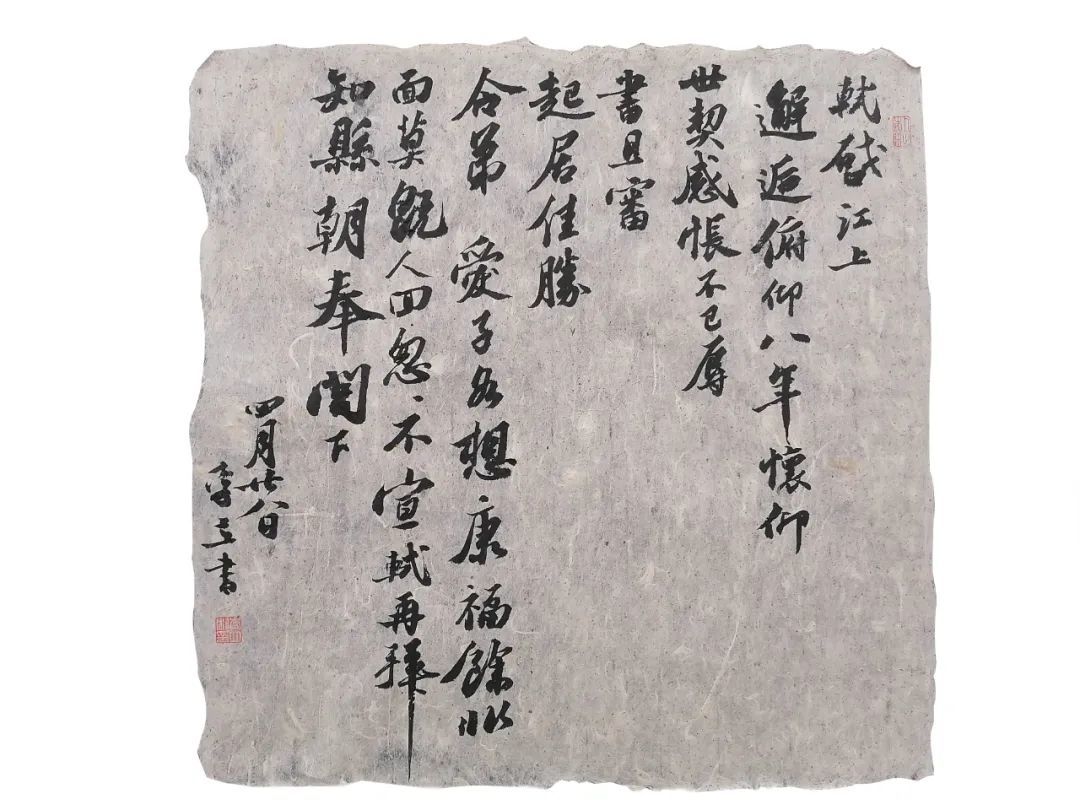 軾啟江上
邂逅俯仰八年懷仰
世契感悵不已辱
書且審
起居佳勝
令弟 愛子各想康福餘非
面莫既人回怱〻不宣軾再拜
知縣朝奉閤下
四月廿八日
李 書